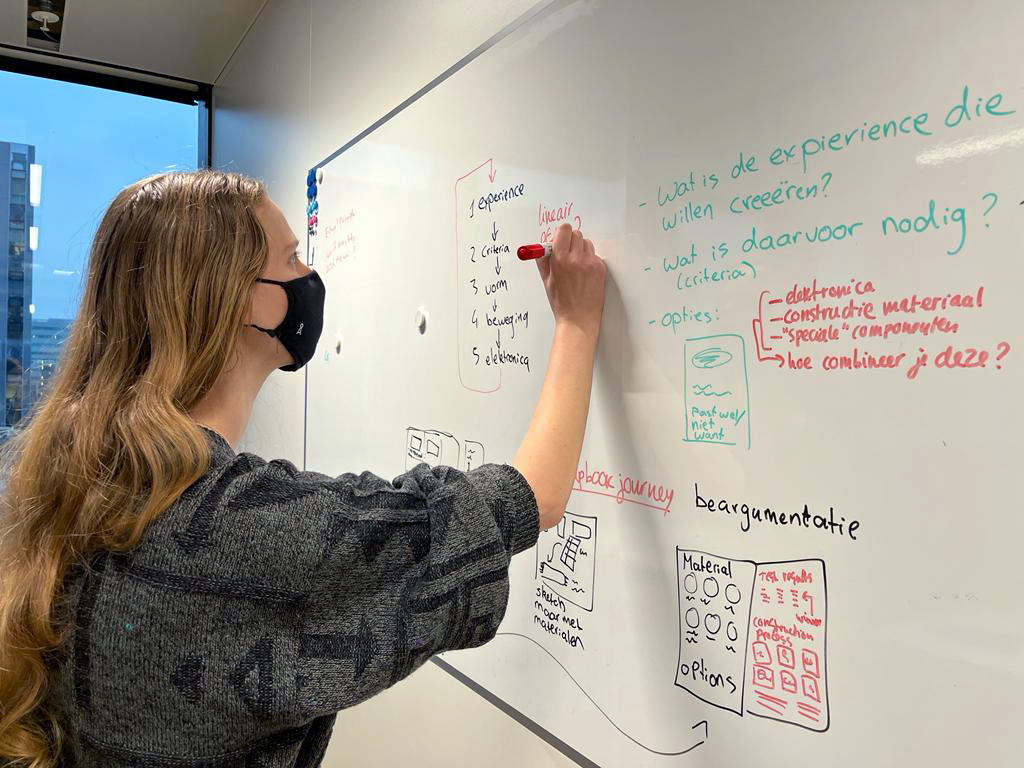 1 experience
2 criteria
3 vorm
4 beweging
5 elektronica
lineair
- Wat is de expierience die
willen creeëren?
- wat is daarvoor nodig?
(criteria)
- opties:
- elektronica
- constructie materiaal
- "speciale" componenten
hoe combineer je deze?
Past wel/
niet
want
journey
sketch
maar met
materialen
beargumentatie
Material
options
Test results
winner
construction
process